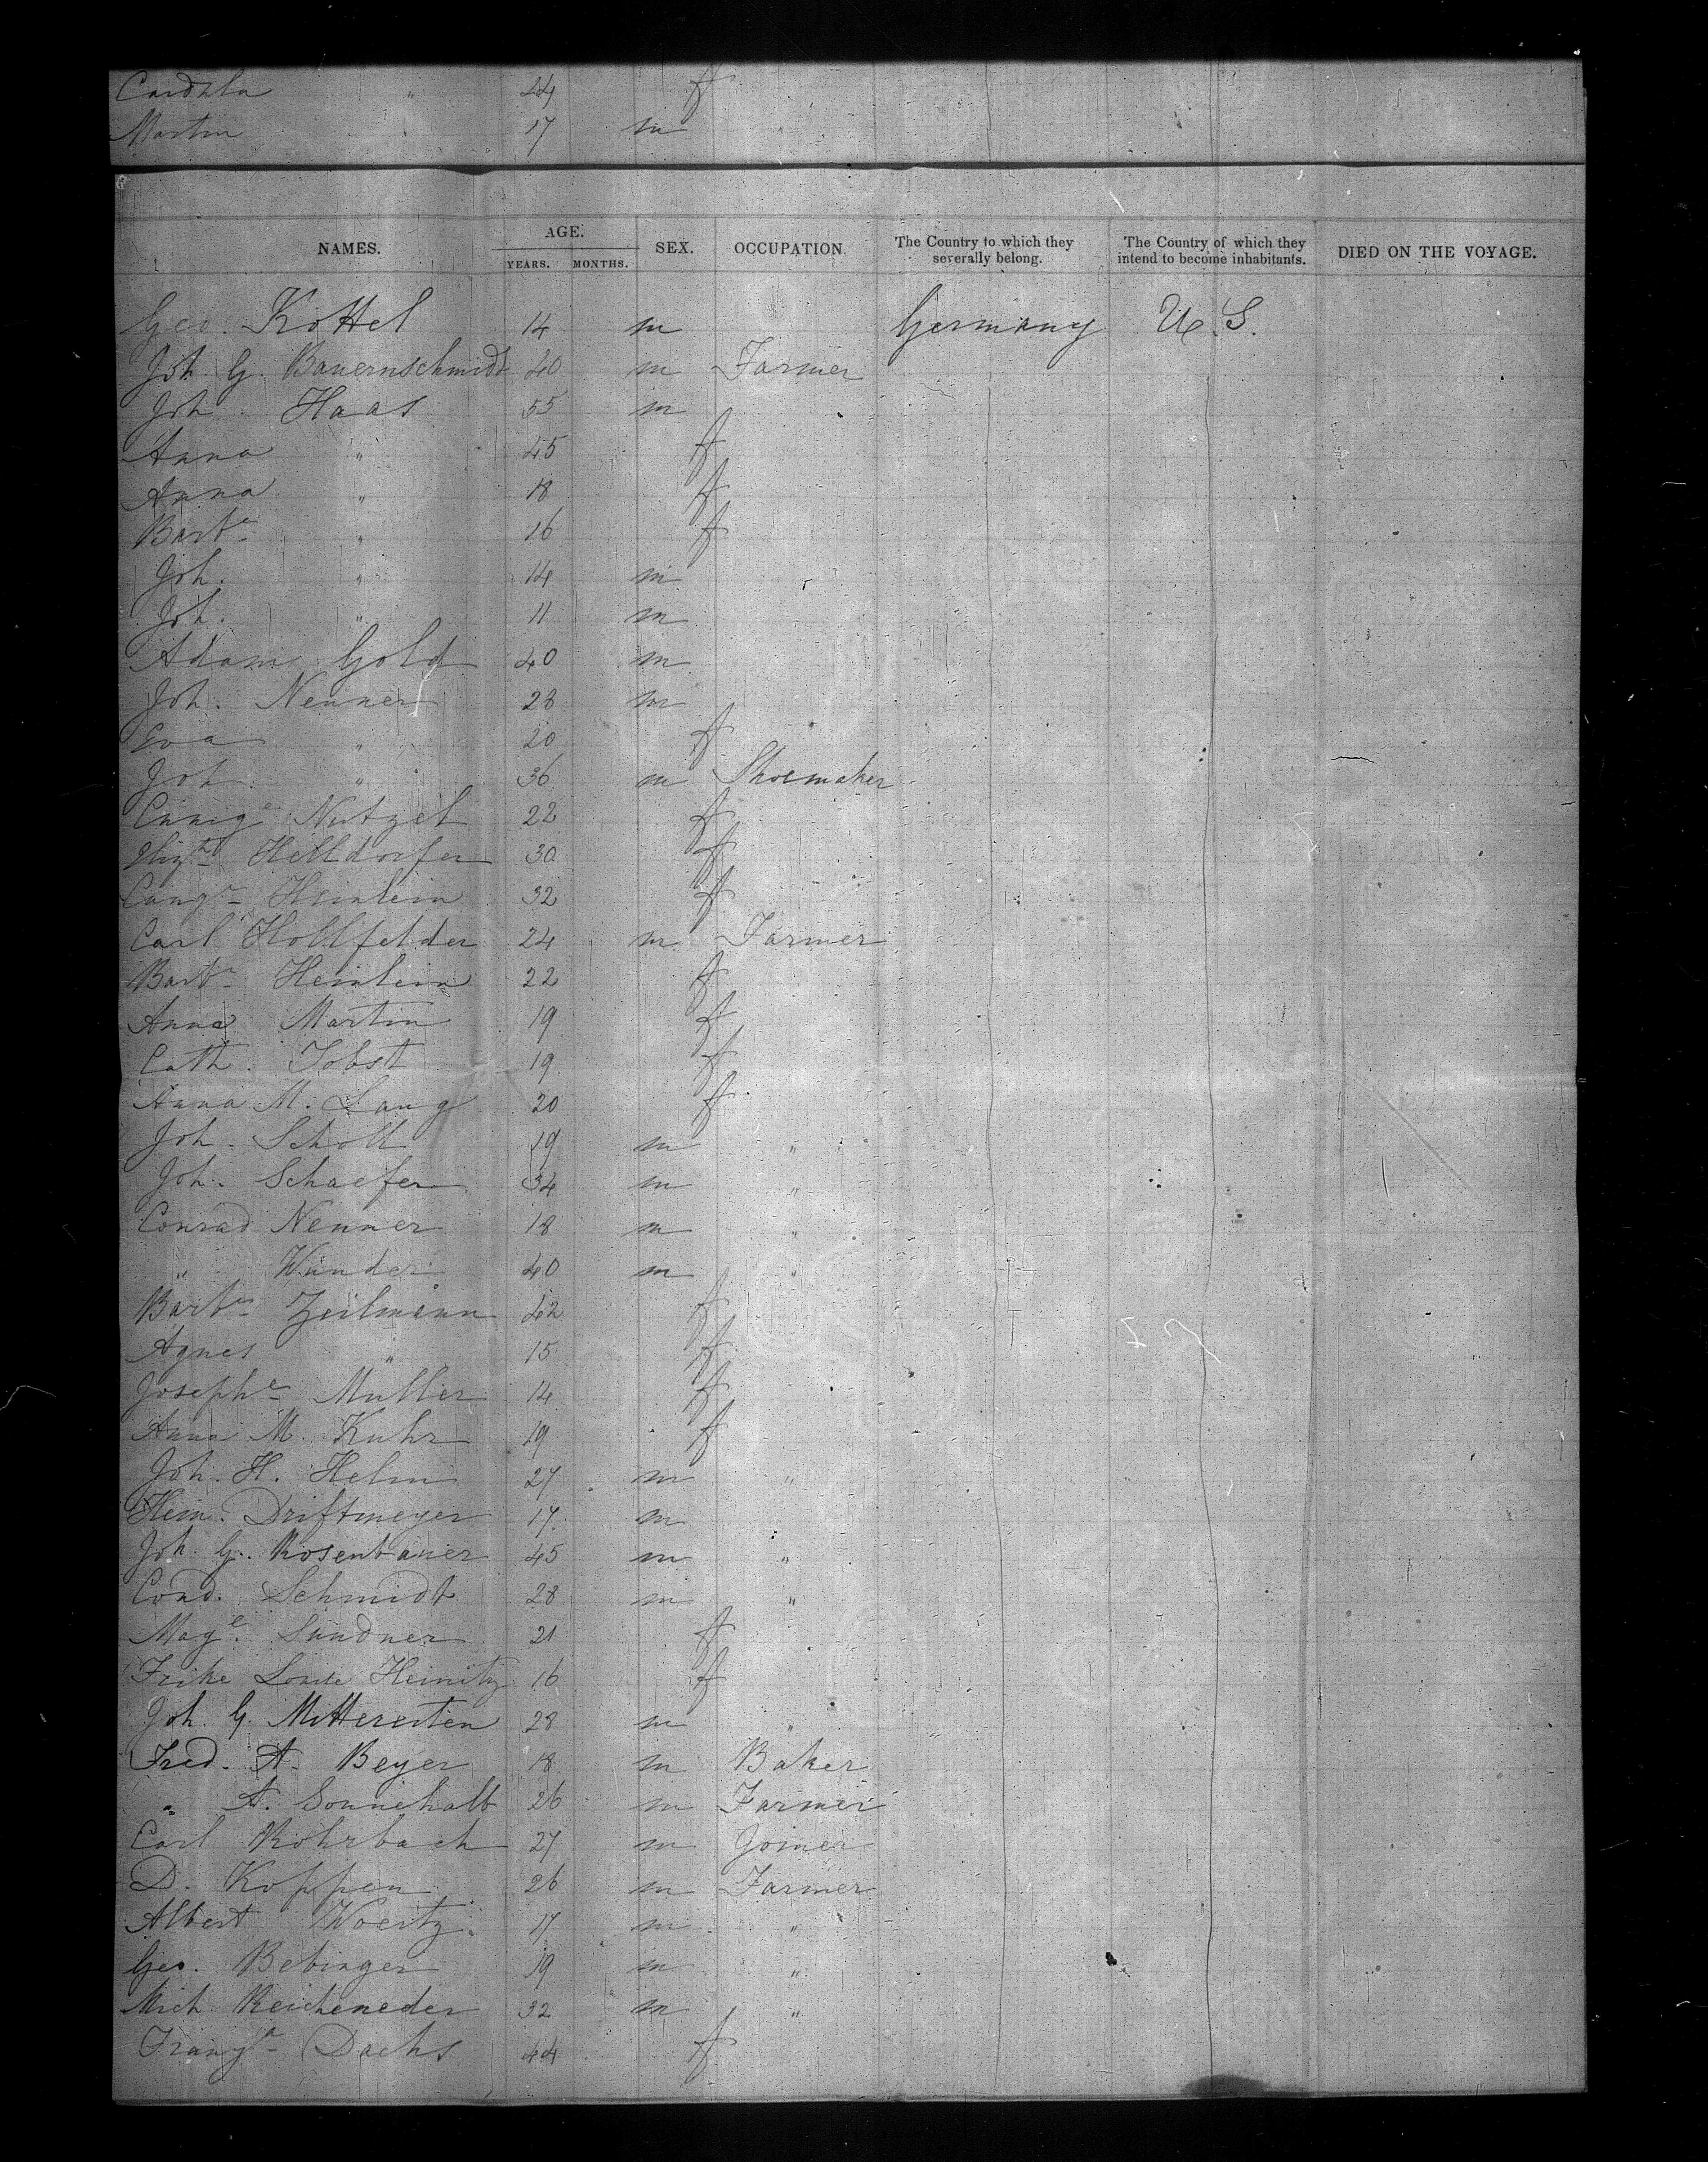 " 44 f
Martin " 17 m
NAMES. AGE. YEARS. MONTHS. SEX. OCCUPATION. The Country to which they severally belong. The Country of which they intend to become inhabitants. DIED ON THE VOYAGE.
Geo. Kottel 14 m Germany U.S.
Joh. G. Bauernschmidt 40 m Farmer
Joh. Haas 55 m
Anna " 45 f
Anna " 18 f
Barba " 16 f
Joh. " 14 m
Joh. " 11 m
Adam Gold 40 m
Joh. Nenner 28 m
Eva " 20 f
Joh. " 36 m Shoemaker
Nutzel 22 f
Helldorfer 30 f
Heinlein 32 f
Carl Hollfelder 24 m Farmer
Barba Heinlein 22 f
Anna Martin 19 f
Cath. Jobst 19 f
Anna M. Lang 20 f
Joh. Scholl 19 m "
Joh. Schaefer 34 m "
Conrad Nenner 18 m "
" Wunder 40 m "
Barba Zeilmann 42 f
Agnes " 15 f
Josephe Muller 14 f
Anna M. Kuhr 19 f
Joh. H. Helm 27 m "
Hein. Driftmeyer 17 m
Joh. G. Rosenbauer 45 m "
Cond. Schmidt 28 m "
Mage. Lindner 21 f
Frike Louise Heinitz 16 f
Joh. G. Mittereiten 28 m "
Fred. A. Beyer 18 m Baker
" A. Sonnehalb 26 m Farmer
Carl Rohrbach 27 m Joiner
D. Koppen 26 m Farmer
Albert Woertz 17 m "
Geo. Bebinger 19 m "
Mich. Reicheneder 32 m "
Dachs 44 f